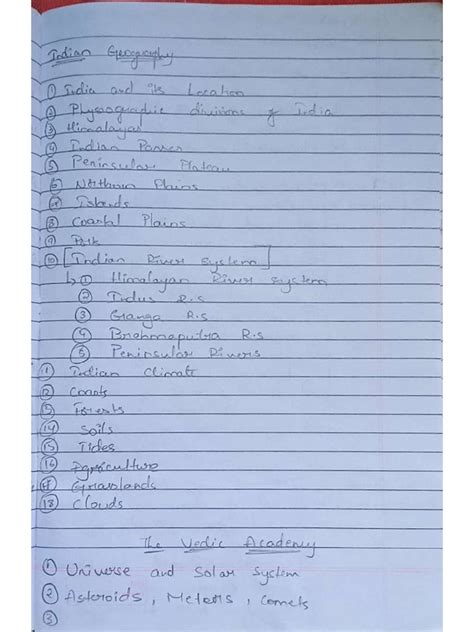 Indian Geography
① India and its Location
② Physiographic divisions of India
③ Himalayas
④ Indian Passes
⑤ Peninsular Plateau
⑥ Northern Plains
⑦ Islands
⑧ Coastal Plains
⑨
⑩ [Indian River System]
↳ ① Himalayan River System
② Indus R.s
③ Ganga R.s
④ Brahmaputra R.s
⑤ Peninsular Rivers
⑪ Indian Climate
⑫ Coasts
⑬ Forests
⑭ Soils
⑮ Tides
⑯ Agriculture
⑰ Grasslands
⑱ Clouds
The Vedic Academy
① Universe and Solar System
② Asteroids, Meteors, Comets
③